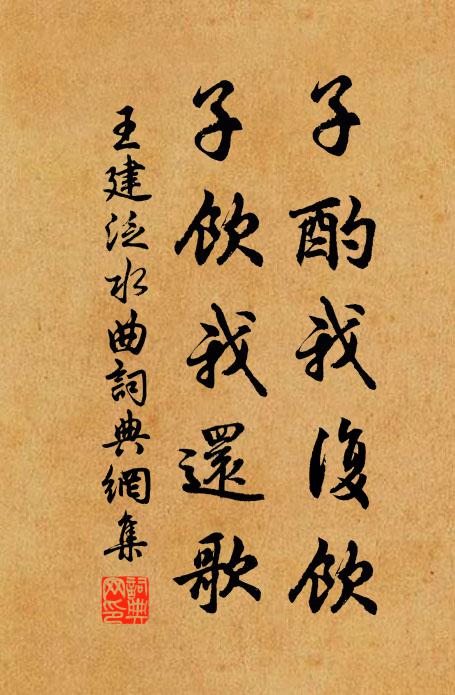 子酌我復飲
子飲我還歌
王建泛水曲詞典網集
詞典網印